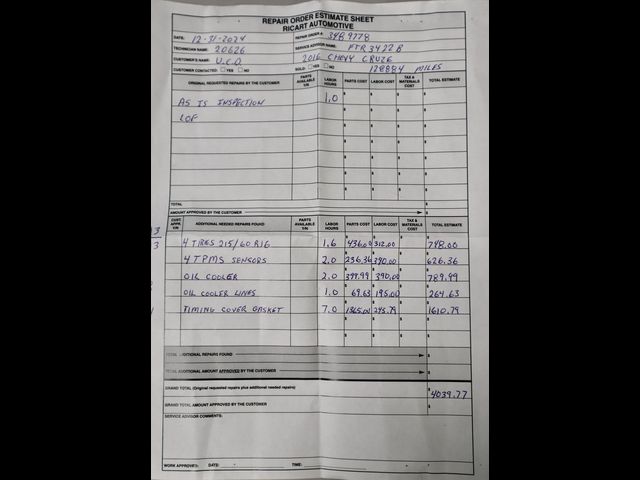 REPAIR ORDER ESTIMATE SHEET
RICART AUTOMOTIVE
DATE: 12-31-2024 REPAIR ORDER #: 3489778
TECHNICIAN NAME: 20626 SERVICE ADVISOR NAME: FTR3422B
CUSTOMER'S NAME: U.C.D. 2016 CHEVY CRUZE
CUSTOMER CONTACTED: YES NO SOLD: YES NO 128884 MILES
ORIGINAL REQUESTED REPAIRS BY THE CUSTOMER PARTS AVAILABLE Y/N LABOR HOURS PARTS COST LABOR COST TAX & MATERIALS COST TOTAL ESTIMATE
AS IS INSPECTION 1.0
LOF
TOTAL
AMOUNT APPROVED BY THE CUSTOMER
CUST. APPR. Y/N ADDITIONAL NEEDED REPAIRS FOUND PARTS AVAILABLE Y/N LABOR HOURS PARTS COST LABOR COST TAX & MATERIALS COST TOTAL ESTIMATE
4 TIRES 215/60 R16 1.6 436.00 312.00 748.00
4 TPMS SENSORS 2.0 236.36 390.00 626.36
OIL COOLER 2.0 399.99 390.00 789.99
OIL COOLER LINES 1.0 69.63 195.00 264.63
TIMING COVER GASKET 7.0 1365.00 245.79 1610.79
TOTAL ADDITIONAL REPAIRS FOUND
TOTAL ADDITIONAL AMOUNT APPROVED BY THE CUSTOMER
GRAND TOTAL (Original requested repairs plus additional needed repairs) $ 4039.77
GRAND TOTAL AMOUNT APPROVED BY THE CUSTOMER
SERVICE ADVISOR COMMENTS:
WORK APPROVED: DATE: TIME: